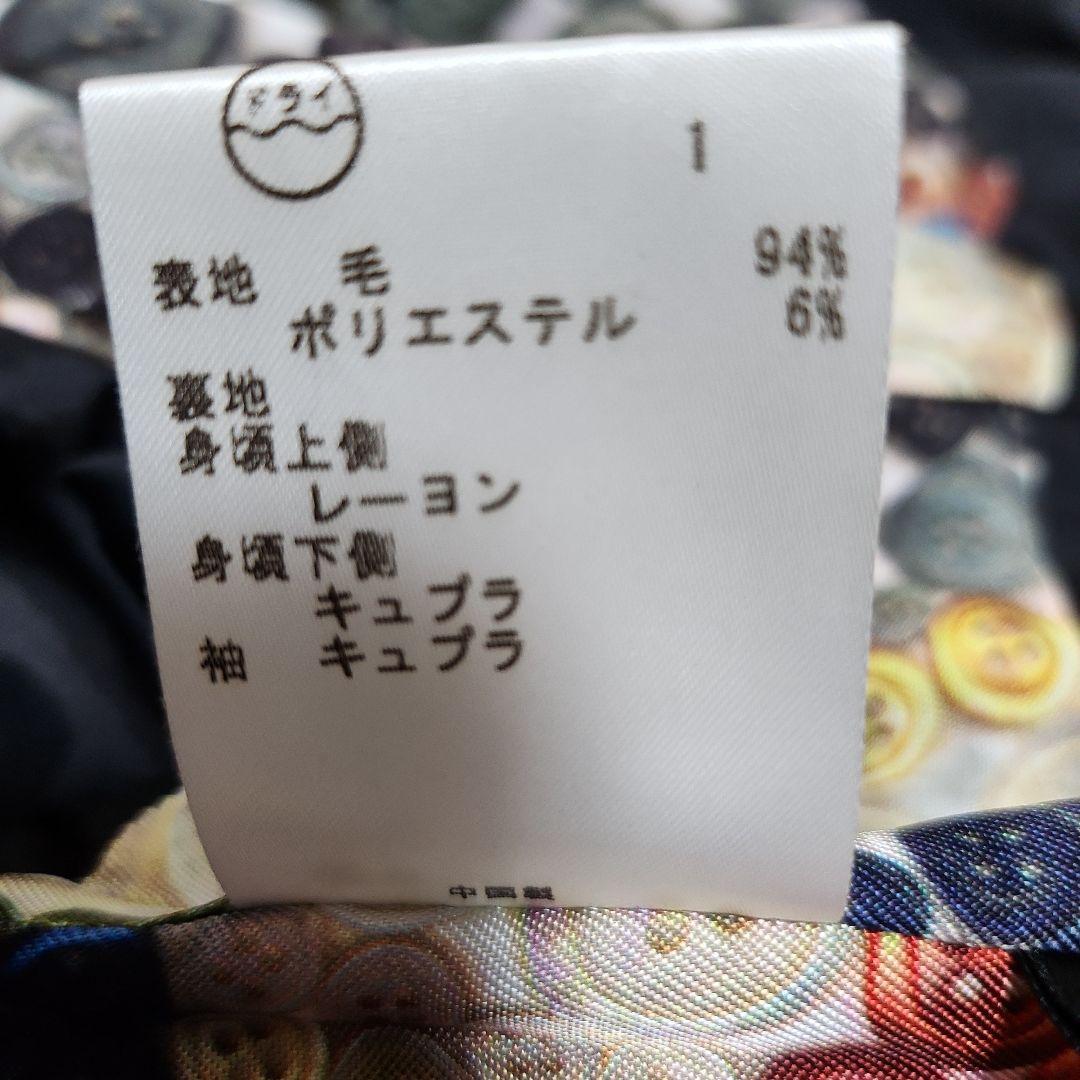 ドライ
1
表地 毛 94%
ポリエステル 6%
裏地
身頃上側
レーヨン
身頃下側
キュプラ
袖 キュプラ
中国製